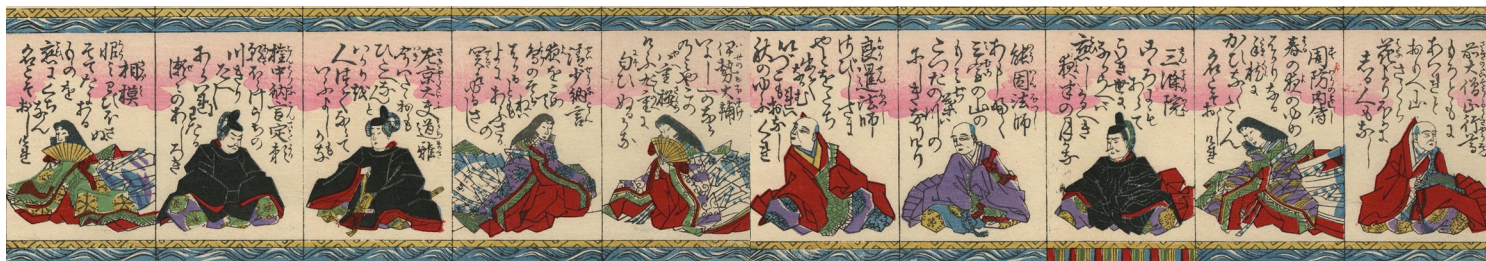 前大僧正行尊
もろともに
あはれと
おもへ山
さくら
花よりほかに
しる人もなし
周防内侍
春の夜のゆめ
はかりなる
手枕に
かひなくたゝん
名こそおしけれ
三條院
こゝろにも
あらて
うき世に
なからへは
恋しかるへき
夜半の月かな
能因法師
あらしふく
三室の山の
もみち葉は
たつたの川の
にしきなりけり
良暹法師
さひしさに
やとをたち
出て
なかむれは
いつこもおなし
秋のゆふくれ
伊勢大輔
いにしへのなら
のみやこの
八重桜
けふ九重に
匂ひぬるかな
清少納言
夜をこめて
鳥の空ねは
はかるとも
よにあふさかの
関はゆるさし
左京大夫道雅
今はたゝおもひ
たえなんと
はかりを
人つてならて
いふよしもかな
権中納言定頼
朝ほらけうちの
川きり
たえ〳〵に
あらはれわたる
瀬々のあしろき
相模
恨みわひほさぬ
そてたにある
ものを
恋にくちなん
名こそおしけれ